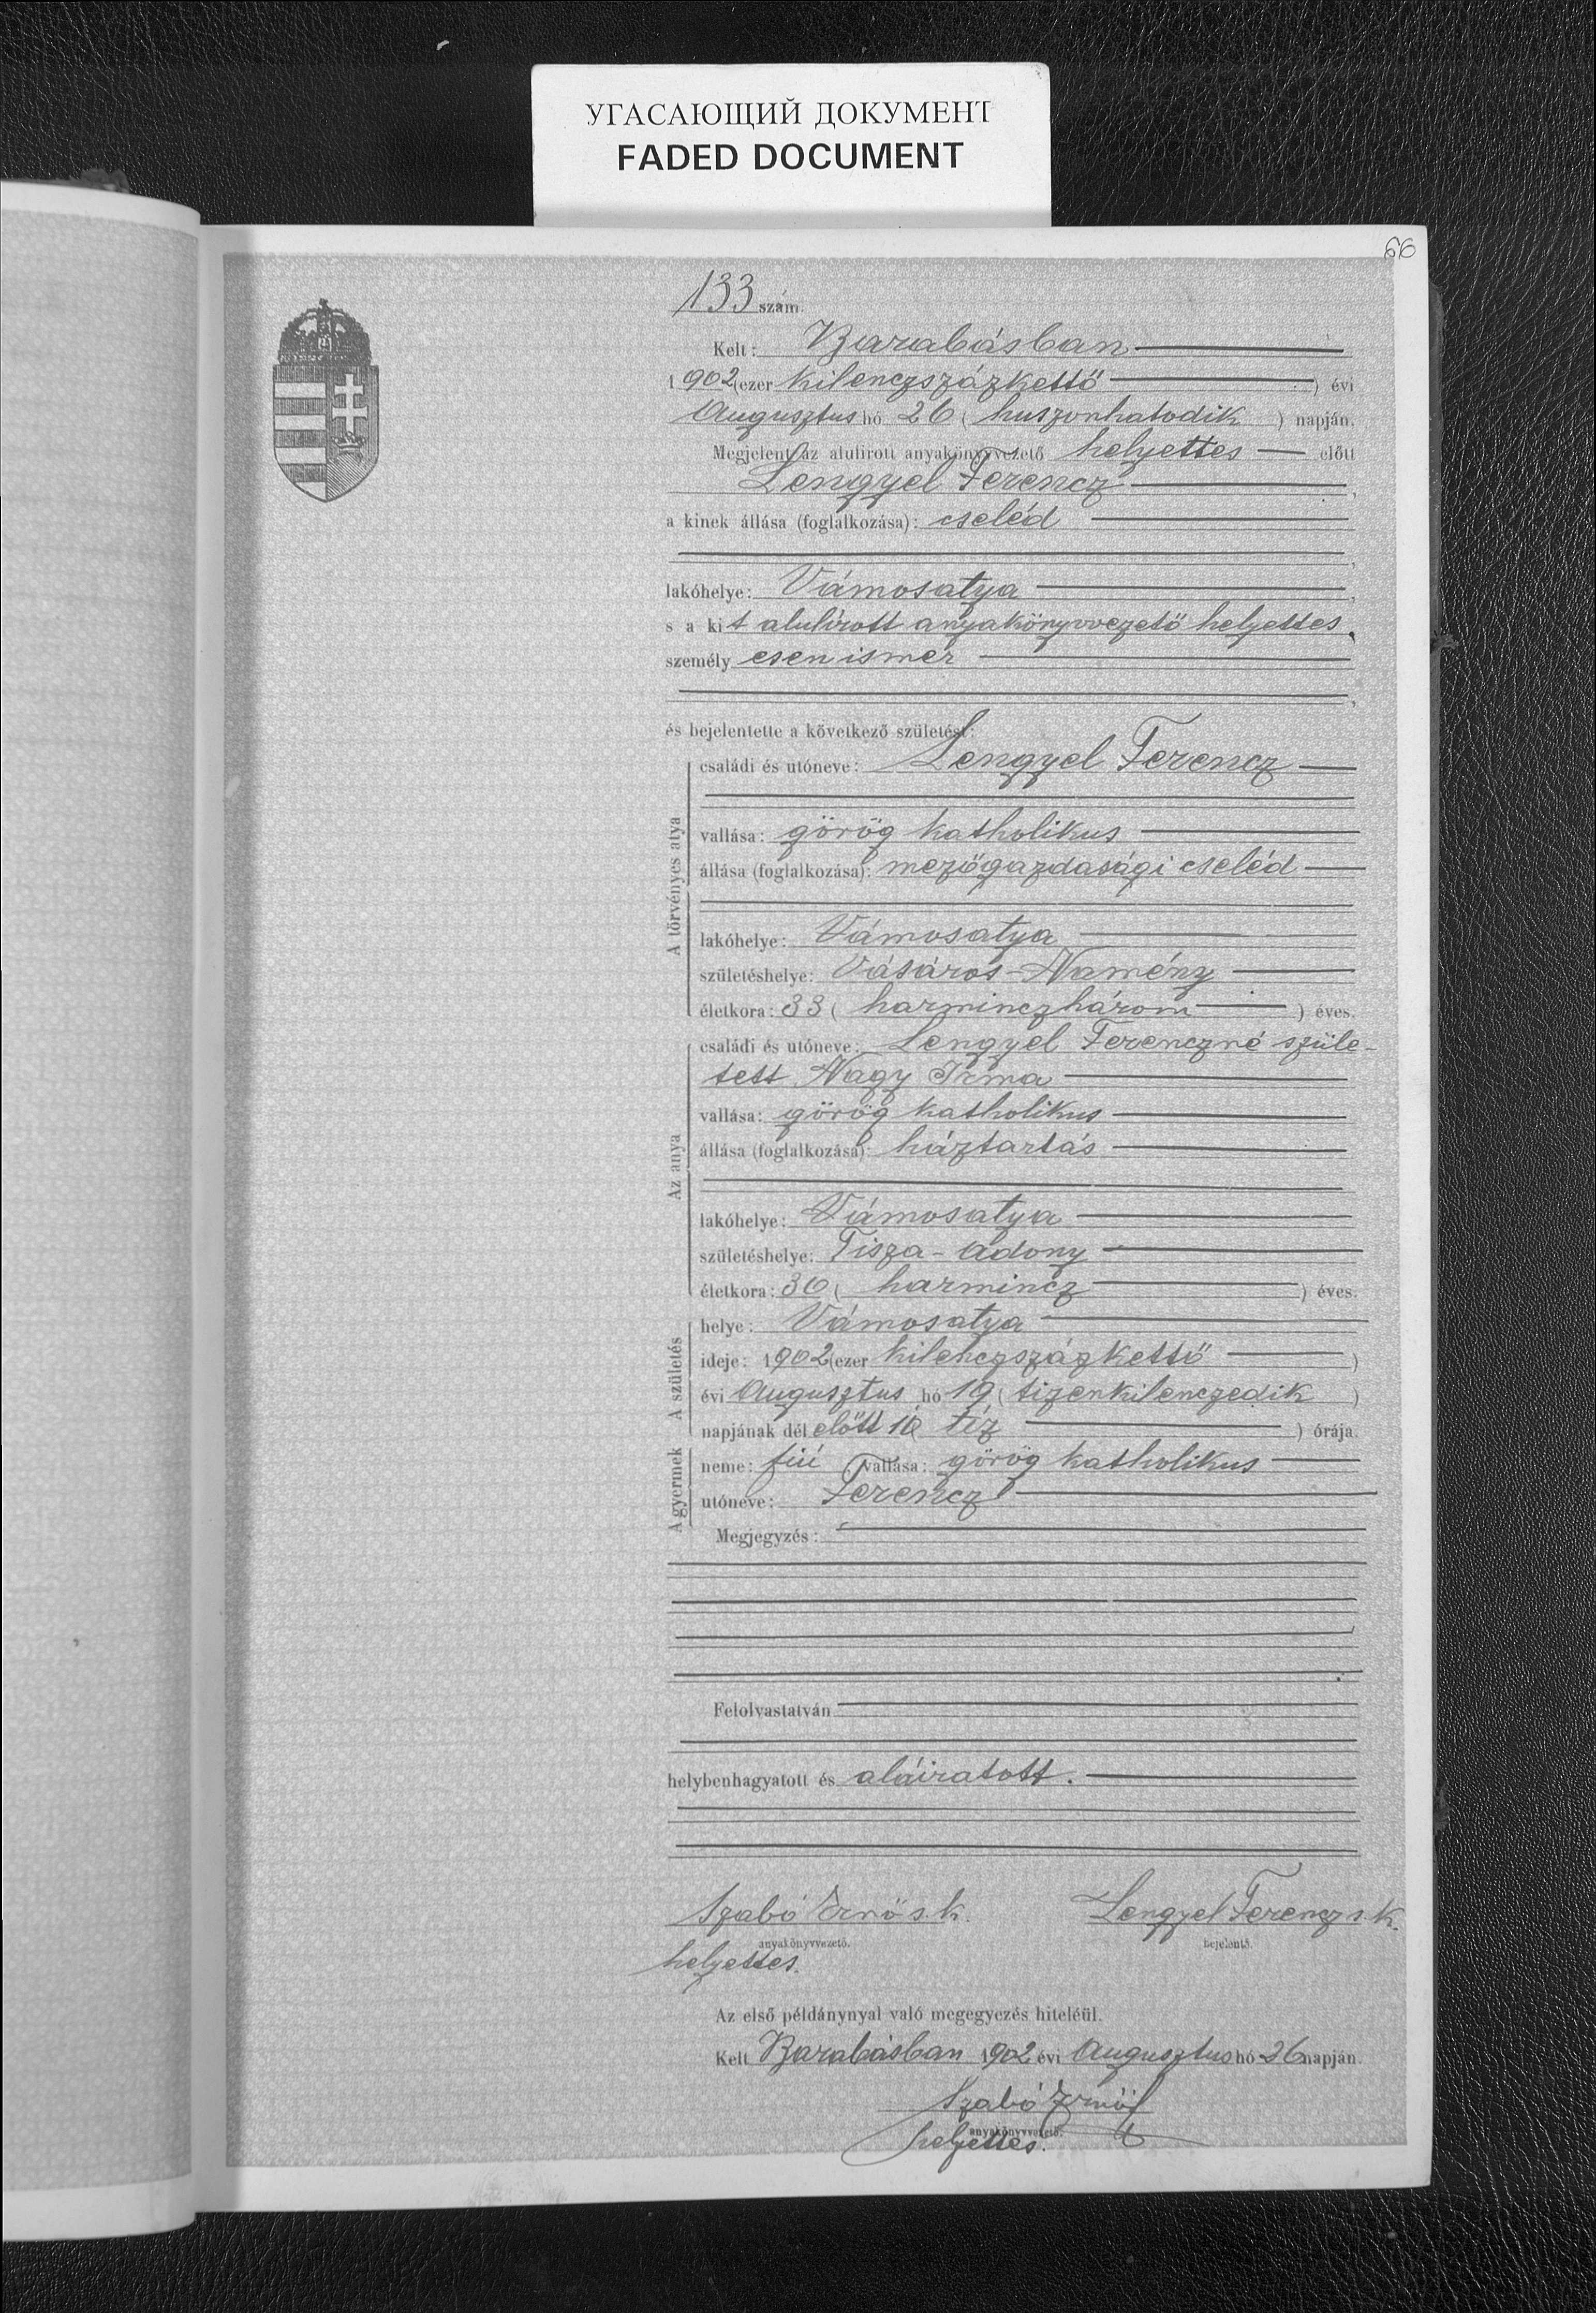 УГАСАЮЩИЙ ДОКУМЕНТ
FADED DOCUMENT
66
133 szám.
Kelt: Barabásban
1902 (ezer kilenczszázkettő) évi
Augusztus hó 26 (huszonhatodik) napján.
Megjelent az alulirott anyakönyvvezető helyettes előtt
Lengyel Ferencz,
a kinek állása (foglalkozása): cseléd
,
lakóhelye: Vámosatya,
s a kit alulírott anyakönyvvezető helyettes,
személyesen ismer
,
és bejelentette a következő születést:
A törvényes atya
családi és utóneve: Lengyel Ferencz
vallása: görög katholikus
állása (foglalkozása): mezőgazdasági cseléd
lakóhelye: Vámosatya
születéshelye: Vásáros-Namény
életkora: 33 (harminczhárom) éves.
Az anya
családi és utóneve: Lengyel Ferenczné szüle-
tett Nagy Irma
vallása: görög katholikus
állása (foglalkozása): háztartás
lakóhelye: Vámosatya
születéshelye: Tisza-Adony
életkora: 30 (harmincz) éves.
A születés
helye: Vámosatya
ideje: 1902 (ezer kilenczszázkettő)
évi Augusztus hó 19 (tizenkilenczedik)
napjának dél előtt 10 (tíz) órája.
A gyermek
neme: fiú, vallása: görög katholikus
utóneve: Ferencz
Megjegyzés:
Felolvastatván
helybenhagyatott és aláiratott.
Szabó Ernő s. k. Lengyel Ferencz s. k.
anyakönyvvezető. bejelentő.
helyettes.
Az első példánynyal való megegyezés hiteléül.
Kelt Barabásban 1902 évi Augusztus hó 26 napján.
Szabó Ernő
anyakönyvvezető.
helyettes.